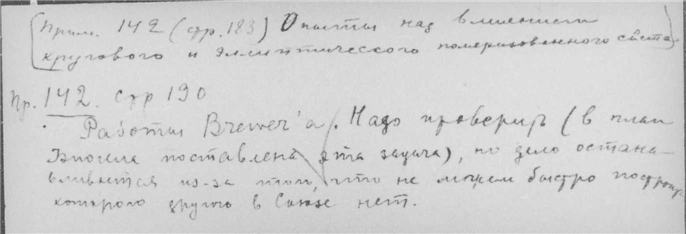 (Прим. 142 (стр. 183) Опыты над влиянием
кругового и эллиптического поляризованного света)
Пр. 142. стр 190
Работы Brewer'а. Надо проверить (в план
поставлена эта задача), но дело остана-
вливается из-за того, что не можем быстро построить
которого другого в Союзе нет.